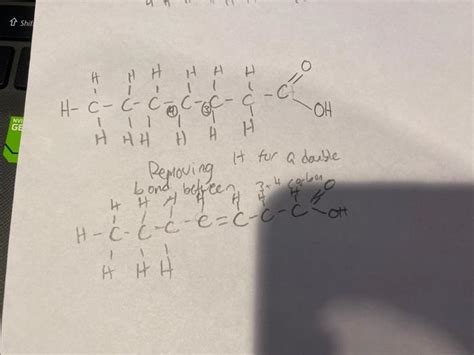 ⇧ Shift
H H H H H H O
H- C - C - C - C - C - C - C
④ ③ OH
H H H H H H
Removing H for a double
bond between 3-4 carbon
H H H H H H H O
H - C - C - C - C = C - C - C - OH
H H H